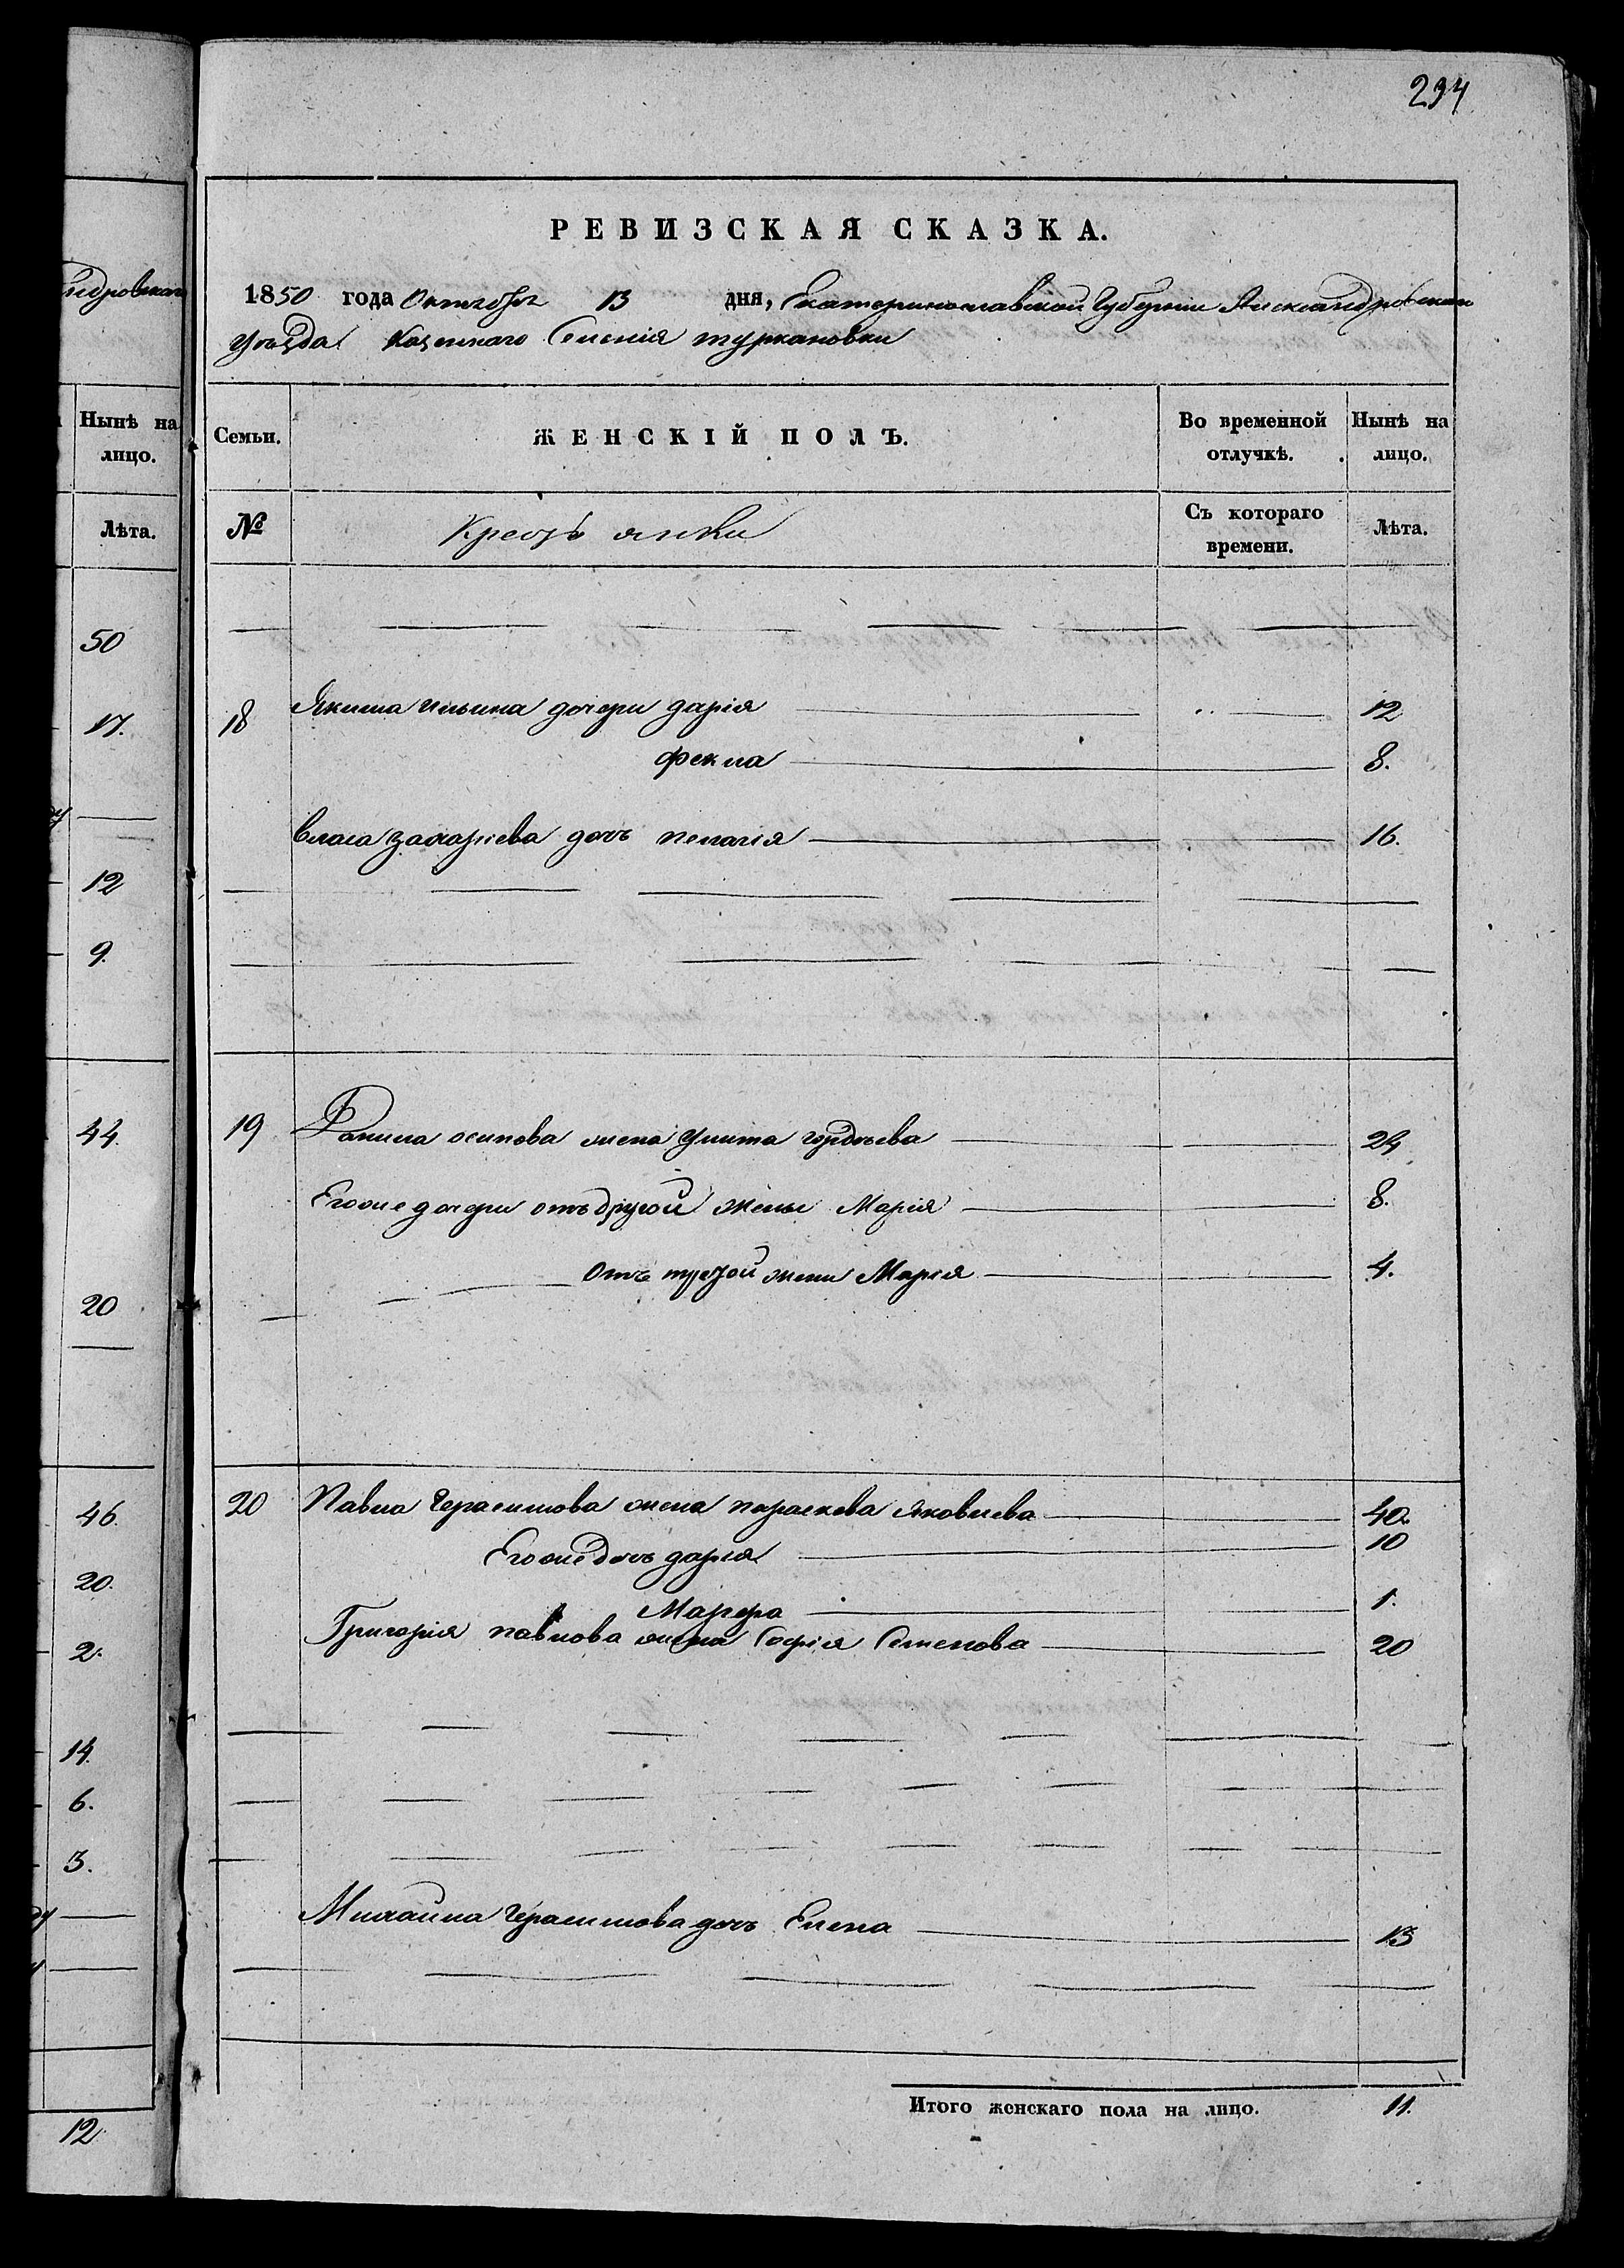 234
РЕВИЗСКАЯ СКАЗКА.
1850 года Октября 13 дня, Екатеринославской Губернии Александровскаго
уѣзда Казеннаго Селенія туркановки
Семьи. ЖЕНСКІЙ ПОЛЪ. Во временной отлучкѣ. Нынѣ на лицо.
№ Крестьянки Съ котораго времени. Лѣта.
18 Якима Ильина дочери дарія 12
фекла 8.
Власа захаріева дочь пелагія 16.
19 Данила осипова жена улита гордѣева 24
Его же дочери отъ другой жены Марія 8.
отъ третой жены Марія 4.
20 Павла Герасимова жена параскева яковлева 40.
Его же дочь дарія 10
Марфа 1.
Григорія павлова жена Софія Семенова 20
Михайла Герасимова дочь Елена 13
Итого женскаго пола на лицо. 11.
Нынѣ на лицо.
Лѣта.
50
17.
12
9.
44.
20
46.
20.
2.
14.
6.
3.
12